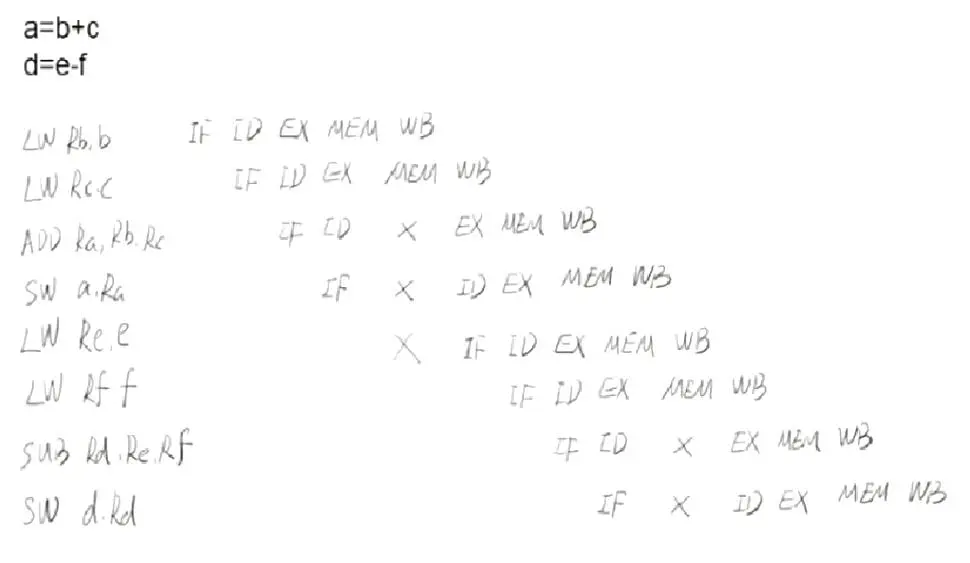 a=b+c
d=e-f
LW Rb,b IF ID EX MEM WB
LW Rc.c IF ID EX MEM WB
ADD Ra, Rb.Rc IF ID X EX MEM WB
SW a.Ra IF X ID EX MEM WB
LW Re.e X IF ID EX MEM WB
LW Rf f IF ID EX MEM WB
SUB Rd.Re.Rf IF ID X EX MEM WB
SW d.Rd IF X ID EX MEM WB